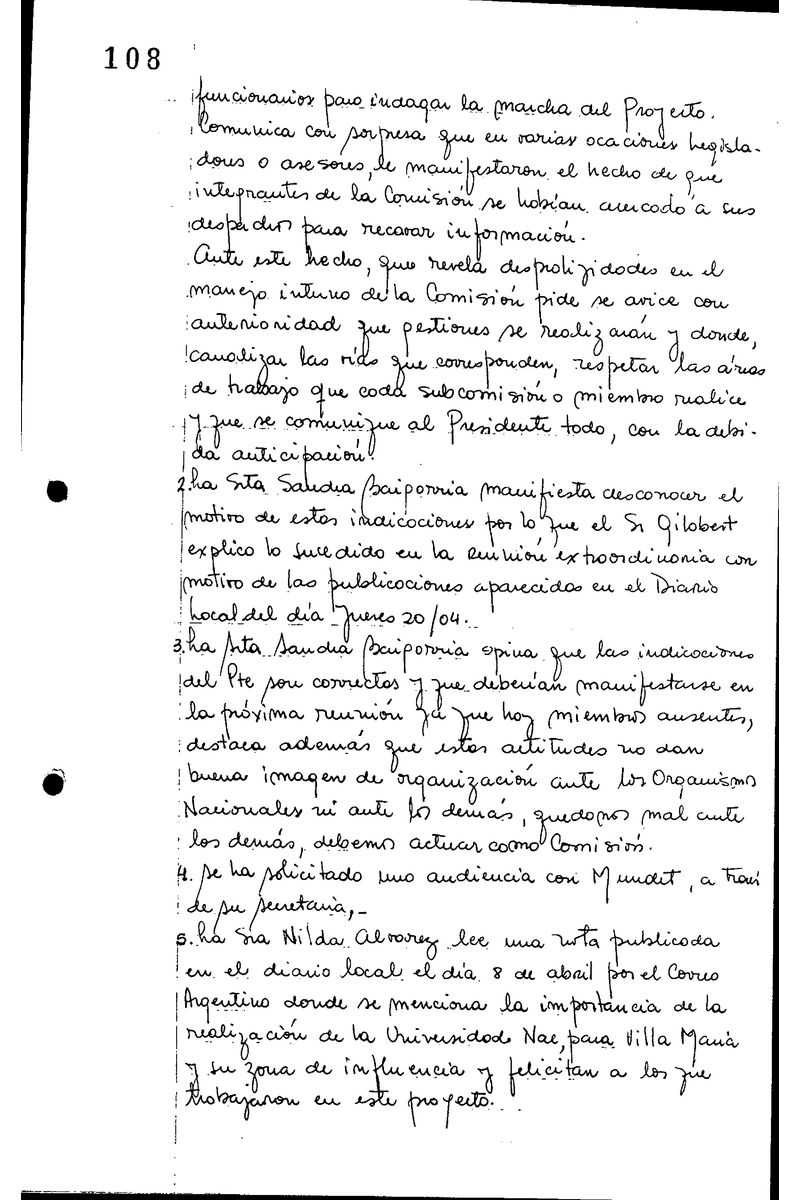 108
funcionarios para indagar la marcha del Proyecto.
Comunica con sorpresa que en varias ocaciones Legisla-
dores o asesores, le manifestaron el hecho de que
integrantes de la Comisión se habían acercado a sus
despachos para recavar información.
Ante este hecho, que revela desprolijidades en el
manejo interno de la Comisión pide se avice con
anterioridad que gestiones se realizarán y donde,
canalizar las vías que corresponden, respetar las áreas
de trabajo que cada subcomisión o miembro realice
y que se comunique al Presidente todo, con la debi-
da anticipación.
2. La Srta Sandra Baigorria manifiesta desconocer el
motivo de estas indicaciones por lo que el Sr Gilobert
explico lo sucedido en la reunión extraordinaria con
motivo de las publicaciones aparecidas en el Diario
Local del día Jueves 20/04.
3. La Srta Sandra Baigorria opina que las indicaciones
del Pte son correctas y que deberían manifestarse en
la próxima reunión ya que hoy miembros ausentes,
destaca además que estas actitudes no dan
buena imagen de organización ante los Organismos
Nacionales ni ante los demás, quedamos mal ante
los demás, debemos actuar como Comisión.
4. Se ha solicitado una audiencia con Mundet, a través
de su secretaria,-
5. La Sra Nilda Alvarez lee una nota publicada
en el diario local el día 8 de abril por el Correo
Argentino donde se menciona la importancia de la
realización de la Universidad Nac, para Villa María
y su zona de influencia y felicitan a los que
trabajaron en este proyecto.